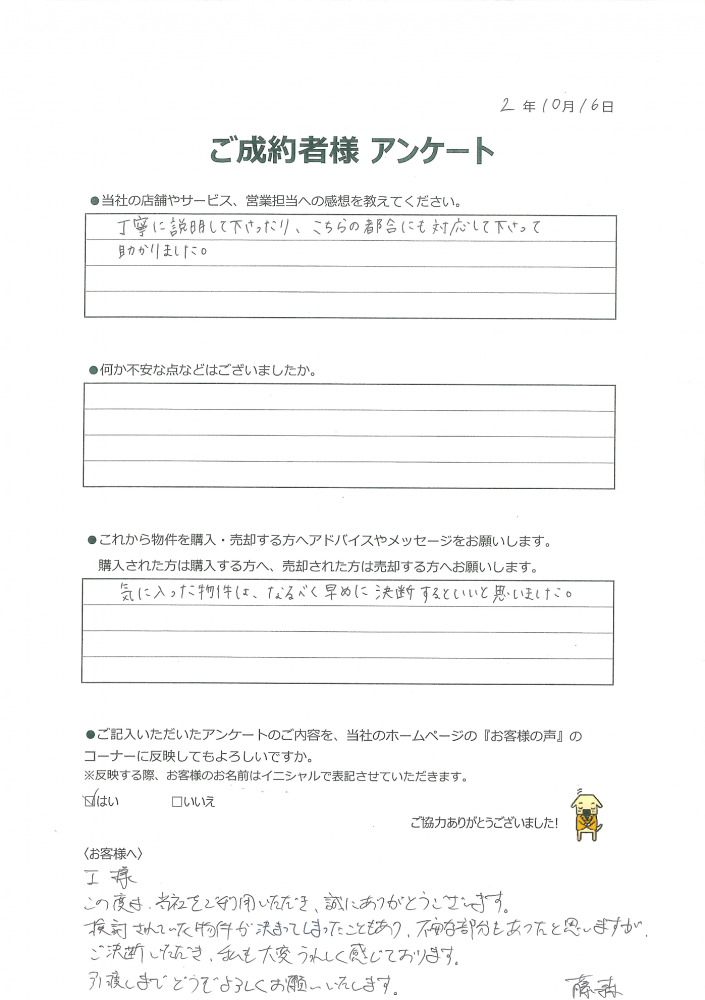 2年10月16日
ご成約者様 アンケート
●当社の店舗やサービス、営業担当への感想を教えてください。
丁寧に説明して下さったり、こちらの都合にも対応して下さって
助かりました。
●何か不安な点などはございましたか。
●これから物件を購入・売却する方へアドバイスやメッセージをお願いします。
購入された方は購入する方へ、売却された方は売却する方へお願いします。
気に入った物件は、なるべく早めに決断するといいと思いました。
●ご記入いただいたアンケートのご内容を、当社のホームページの『お客様の声』の
コーナーに反映してもよろしいですか。
※反映する際、お客様のお名前はイニシャルで表記させていただきます。
☑はい □いいえ
ご協力ありがとうございました!
〈お客様へ〉
I 様
この度は、当社をご利用いただき、誠にありがとうございます。
検討されていた物件が決まってしまったこともあり、不安な部分もあったと思いますが、
ご決断いただき、私も大変うれしく感じております。
引渡しまでどうぞよろしくお願いいたします。
藤森